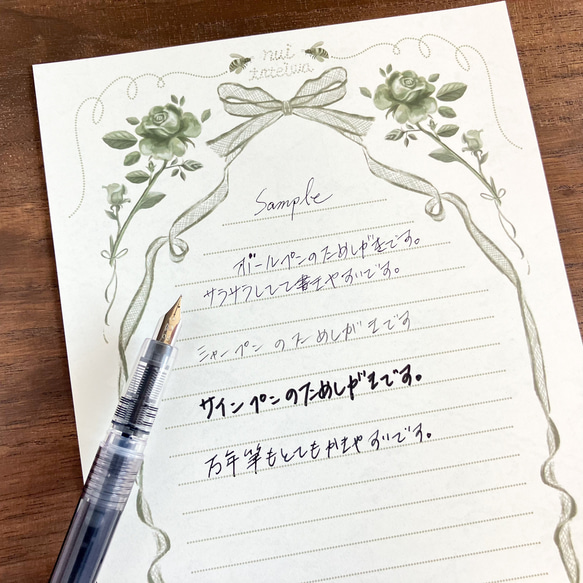 nui
txteiwa
Sample
ボールペンのためしがきです。
サラサラしてて書きやすいです。
シャーペンのためしがきです
サインペンのためしがきです。
万年筆もとてもかきやすいです。